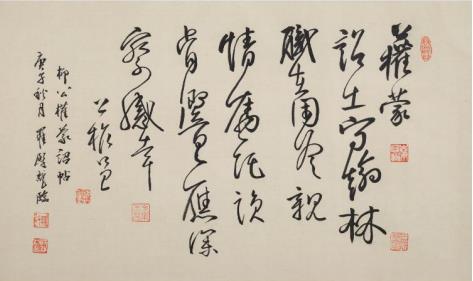 權蒙
詔出守翰林
職在閑冷親
情囑託誰
肯響應深
察感幸
公權呈
柳公權蒙詔帖
庚子秋月 羅 臨